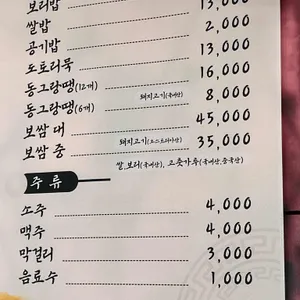 보리밥
쌀밥 13,000
공기밥 2,000
도토리묵 13,000
동그랑땡(12개) 16,000
동그랑땡(6개) 돼지고기(국내산) 8,000
보쌈 대 45,000
보쌈 중 돼지고기(오스트리아산) 35,000
쌀,보리(국내산), 고춧가루(국내산,중국산)
주 류
소주 4,000
맥주 4,000
막걸리 3,000
음료수 1,000